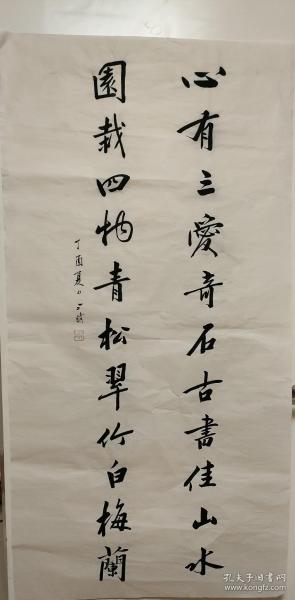 心有三愛奇石古書佳山水
園栽四物青松翠竹白梅蘭
丁酉夏日
孔夫子旧书网